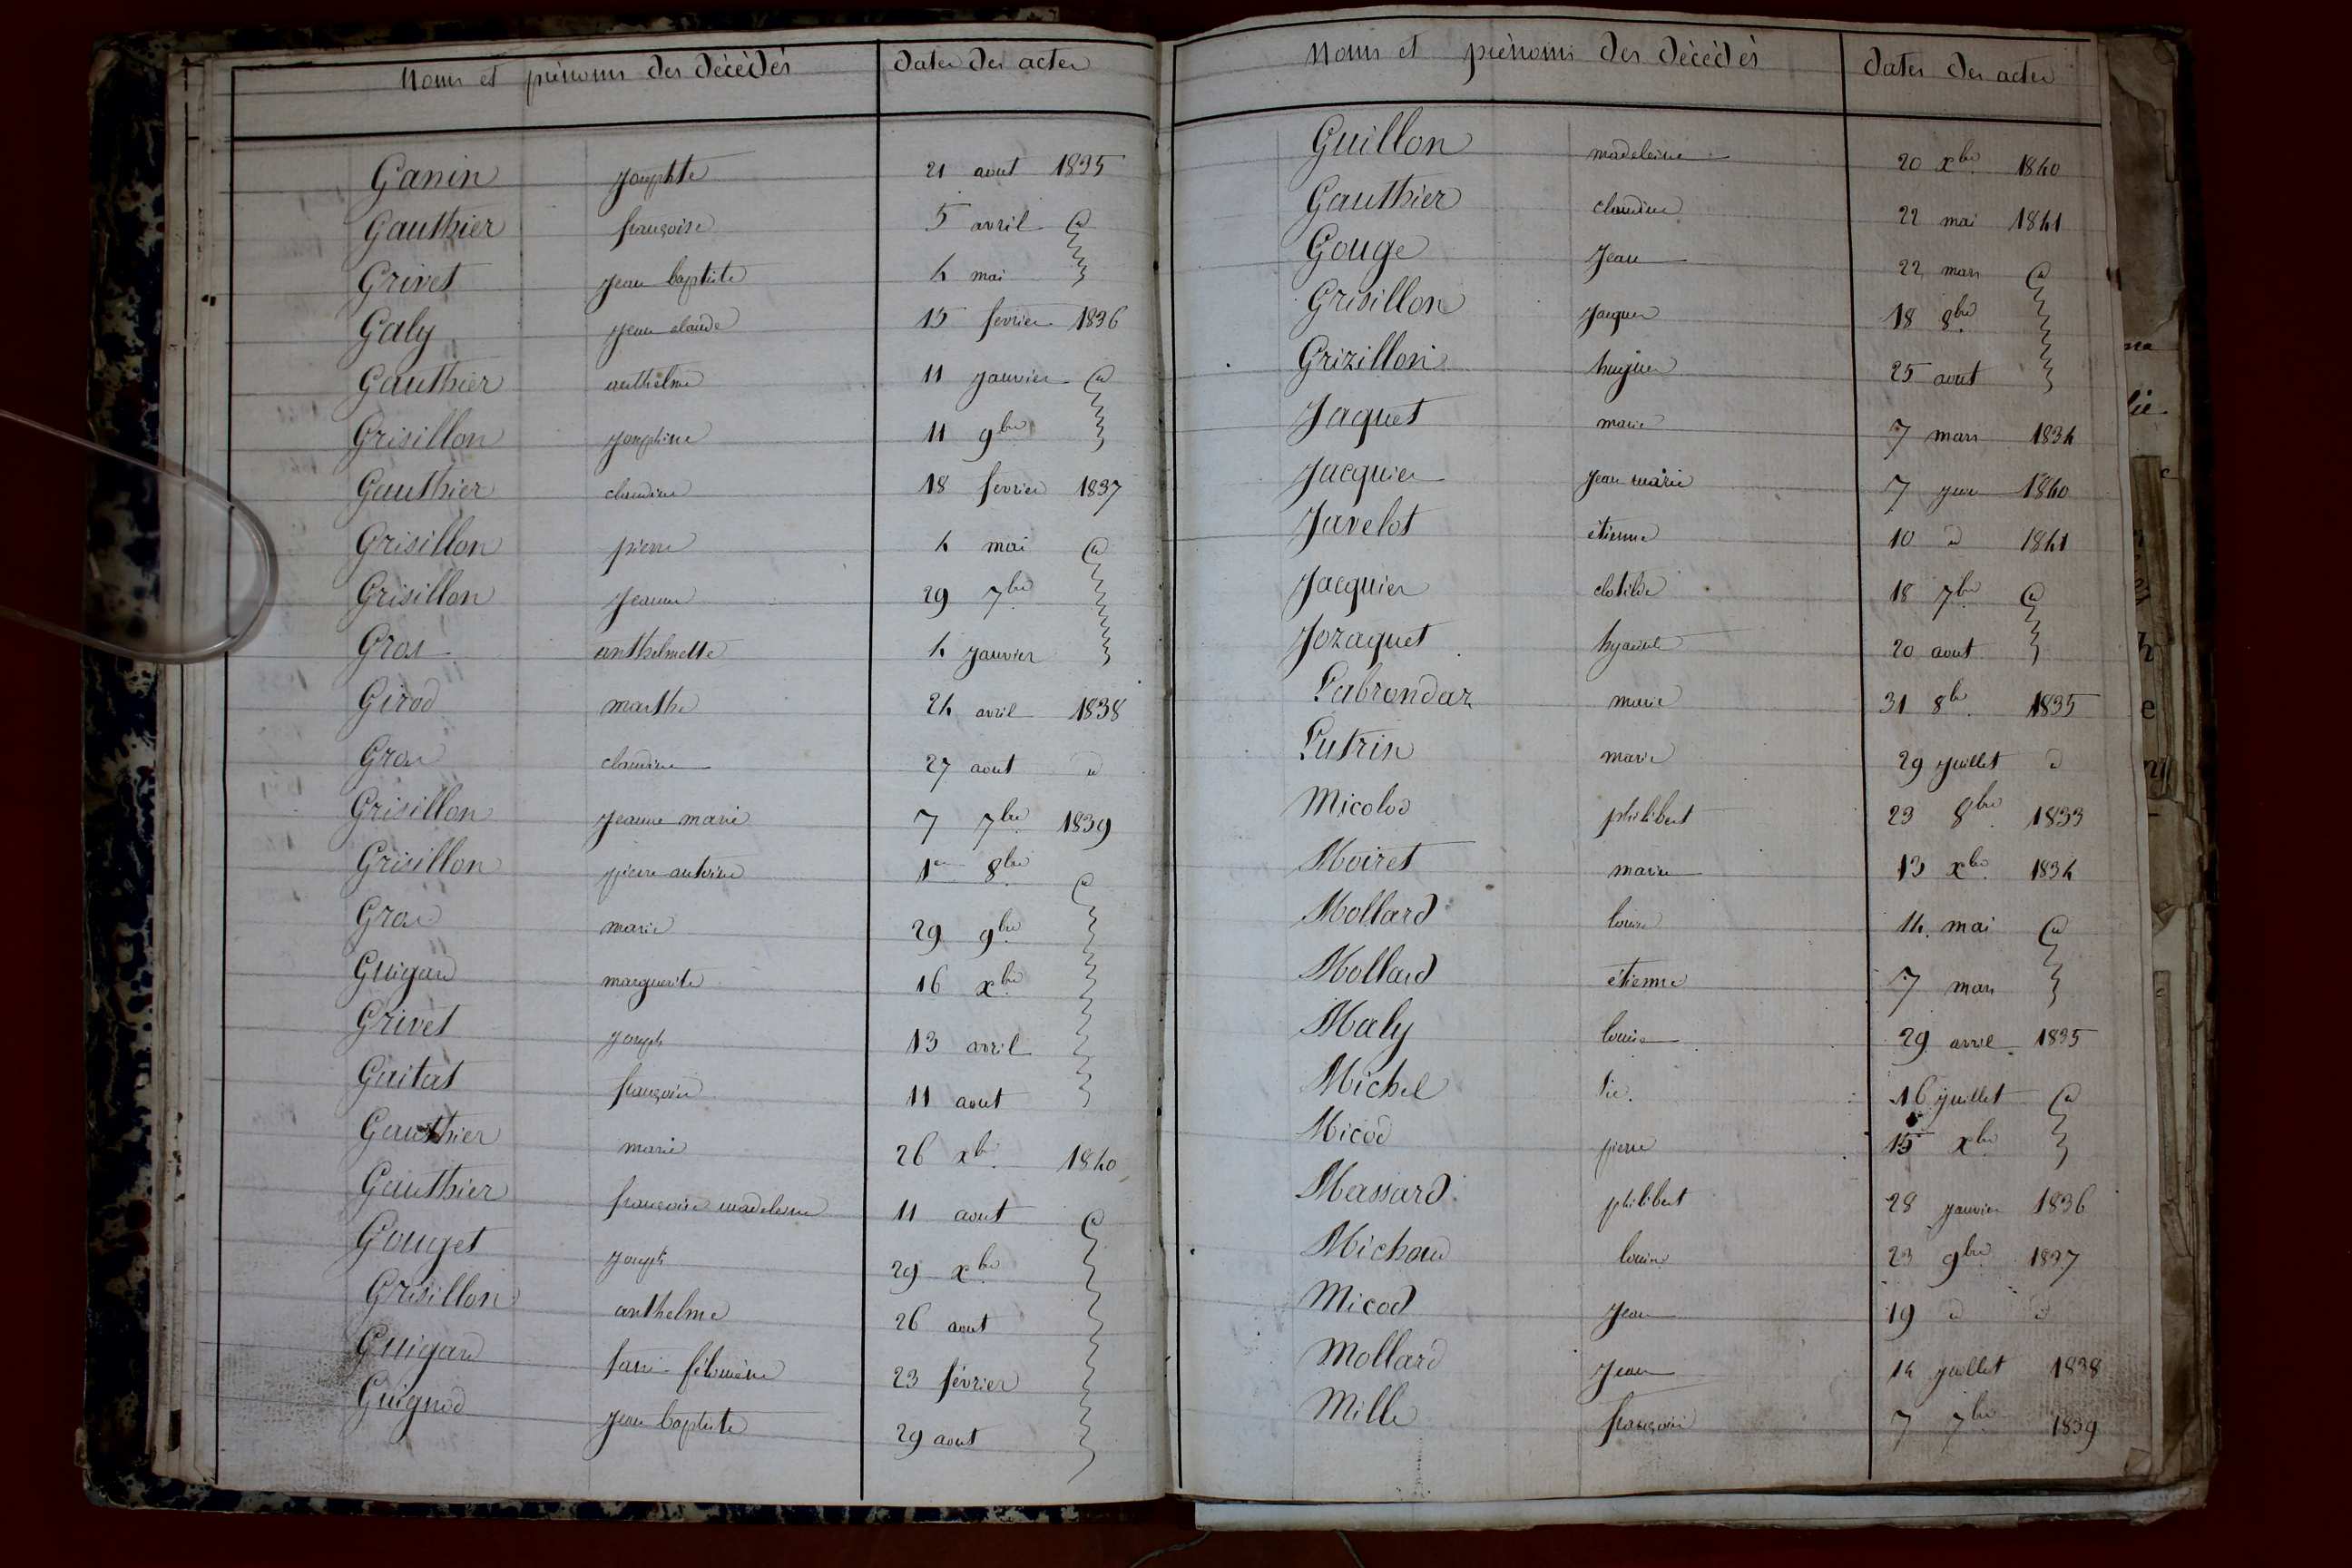 Noms et prénoms des décédés dates des actes
Ganin josephte 21 aout 1835
Gauthier françoise 5 avril
Grivet jean baptiste 4 mai
Galy jean claude 15 fevrier 1836
Gauthier anthelme 11 janvier
Grisillon josephine 11 9bre
Gauthier claudine 18 fevrier 1837
Grisillon pierre 4 mai
Grisillon jeanne 29 7bre
Gros anthelmette 4 janvier
Girod marthe 24 avril 1838
Gros claudine 27 aout d
Grisillon jeanne marie 7 7bre 1839
Grisillon pierre antoine 1er 8bre
Gros marie 29 9bre
Guigard marguerite 16 xbre
Grivet joseph 13 avril
Guitat 11 aout
Gauthier marie 26 xbre 1840
Gauthier françoise madeleine 11 aout
Gouget joseph 29 xbre
Grisillon anthelme 26 aout
Guigard filomène 23 février
Guignod jean baptiste 29 aout
Noms et prénoms des décédés dates des actes
Guillon madeleine 20 xbre 1840
Gauthier claudine 22 mai 1841
Gouge jean 22 mars
Grisillon jacques 18 8bre
Grizillon hugues 25 aout
Jaquet marie 7 mars 1834
Jacquier jean marie 7 juin 1840
Javelot étienne 10 d 1841
Jacquier clotilde 18 7bre
Jozaquet 20 aout
Labrondaz marie 31 8bre 1835
Lutrin marie 29 juillet d
Micolod philibert 23 8bre 1833
Moiret marie 13 xbre 1834
Mollard louise 14 mai
Mollard étienne 7 mars
Maly louise 29 avril 1835
Michel 16 juillet
Micod pierre 15 xbre
Massard philibert 28 janvier 1836
Michaud louise 23 9bre 1837
Micod jean 19 d d
Mollard jean 14 juillet 1838
Mille 7 7bre 1839